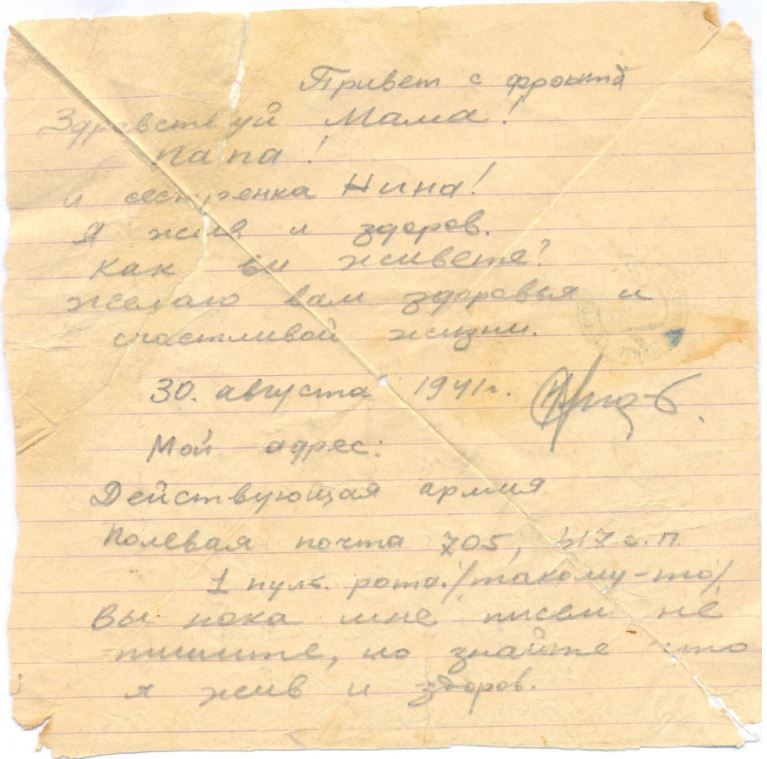 Привет с фронта
Здравствуй Мама!
Папа!
и сестренка Нина!
Я жив и здоров.
Как вы живете?
желаю вам здоровья и
счастливой жизни.
30. августа 1941г.
Мой адрес:
Действующая армия
Полевая почта 705, с.п.
1 пул. рота /такому-то/
Вы пока мне писем не
пишите, но знайте что
я жив и здоров.